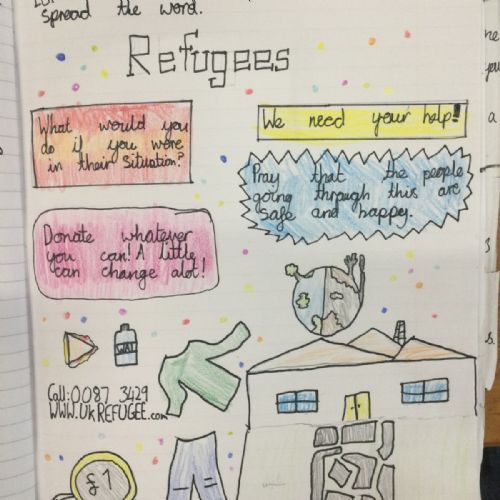 spread the word.
Refugees
What would you
do if you were
in their situation?
We need your help!
Pray that the people
going through this are
safe and happy.
Donate whatever
you can! A little
can change alot!
Call: 0087 3429
WWW.UKREFUGEE.com
£1